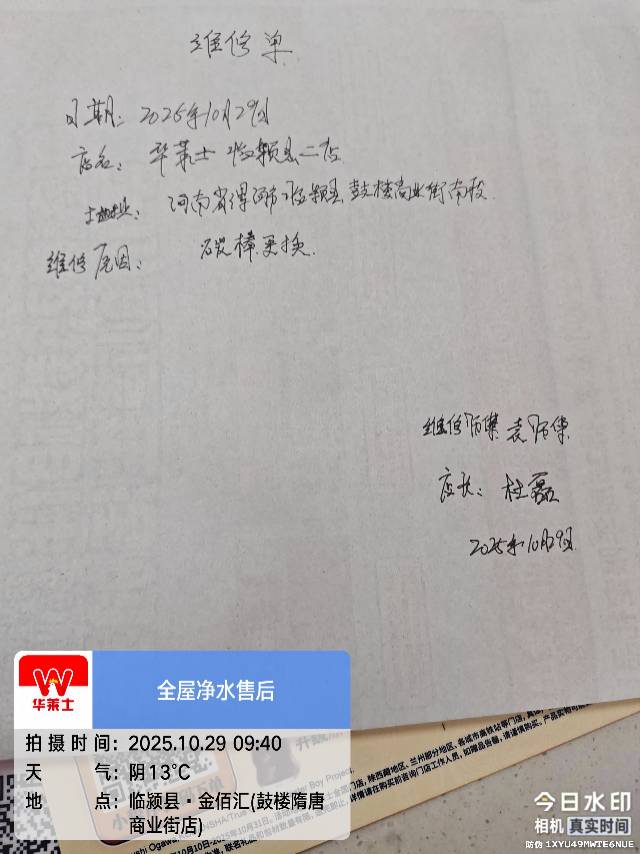 维修单
日期：2025年10月29日
店名：华莱士 临颍县二店
地址：河南省漯河市临颍县鼓楼商业街南段
维修原因：碳棒更换
维修师傅 袁师傅
店长：杜磊
2025年10月29日
华莱士
全屋净水售后
拍摄时间：2025.10.29 09:40
天气：阴13℃
地点：临颍县·金佰汇(鼓楼隋唐
商业街店)
今日水印
相机 真实时间
防伪 1XYU49MWTE6NUE